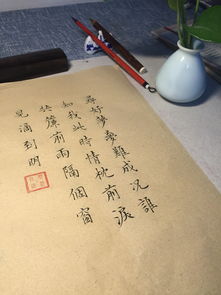 尋好夢夢難成況誰
知我此時情枕前淚
共簾前雨隔個窗
兒滴到明